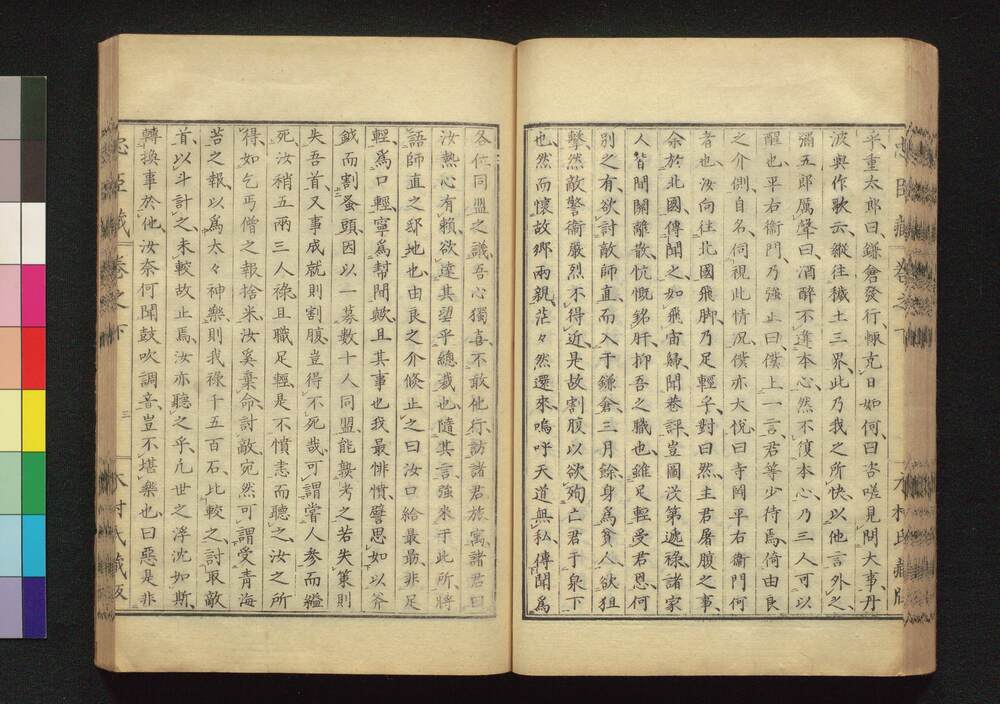 乎重太郎曰鎌倉發行極克日如何曰咨嗟見問大事丹
波與作歌云縱往穢土三界此乃我之所快以他言外之
彌五郎厲聲曰酒醉不違本心然不復本心乃三人可以
醒也平右衞門乃強止曰僕上一言君等少待焉倚由良
之介側自名伺視此情况僕亦大悅曰寺岡平右衞門何
者也汝向往北國飛脚乃足輕乎對曰然主君屠腹之事
余於北國傳聞之如飛宙歸聞巷評豈圖沒第遞祿諸家
人皆間關離散忼慨銘肝抑吾之職也雖足輕受君恩何
別之有欲討敵師直而入于鎌倉三月餘身爲貧人欲狙
擊然敵警衞嚴烈不得近是故割腹以欲殉亡君于泉下
也然而懷故鄉兩親茫々然還來嗚呼天道無私傳聞爲
各位同盟之議吾心獨喜不敢他行訪諸君旅寓諸君曰
汝熱心有賴欲達其望乎總裁也隨其言強來于此所將
語師直之邸地也由良之介倏止之曰汝口給最最非足
輕爲口輕寧爲幫間歟且其事也我最悱憤譬思如以斧
鉞而割蚤頭因以一募數十人同盟能鞍考之若失策則
失吾首又事成就則割腹豈得不死哉可謂嘗人參而縊
死汝稍五兩三人祿且職足輕是不憤恚而聽之汝之所
得如乞丐僧之報捨米汝奚棄命討敵宛然可謂受靑海
苔之報以爲太々神樂則我祿千五百石比較之討取敵
首以斗計之未較故止焉汝亦聽之乎凡世之浮沈如斯
轉換事於他汝奈何聞鼓吹調音豈不堪樂也曰惡是非
忠臣藏 卷之下 二 木村氏藏版